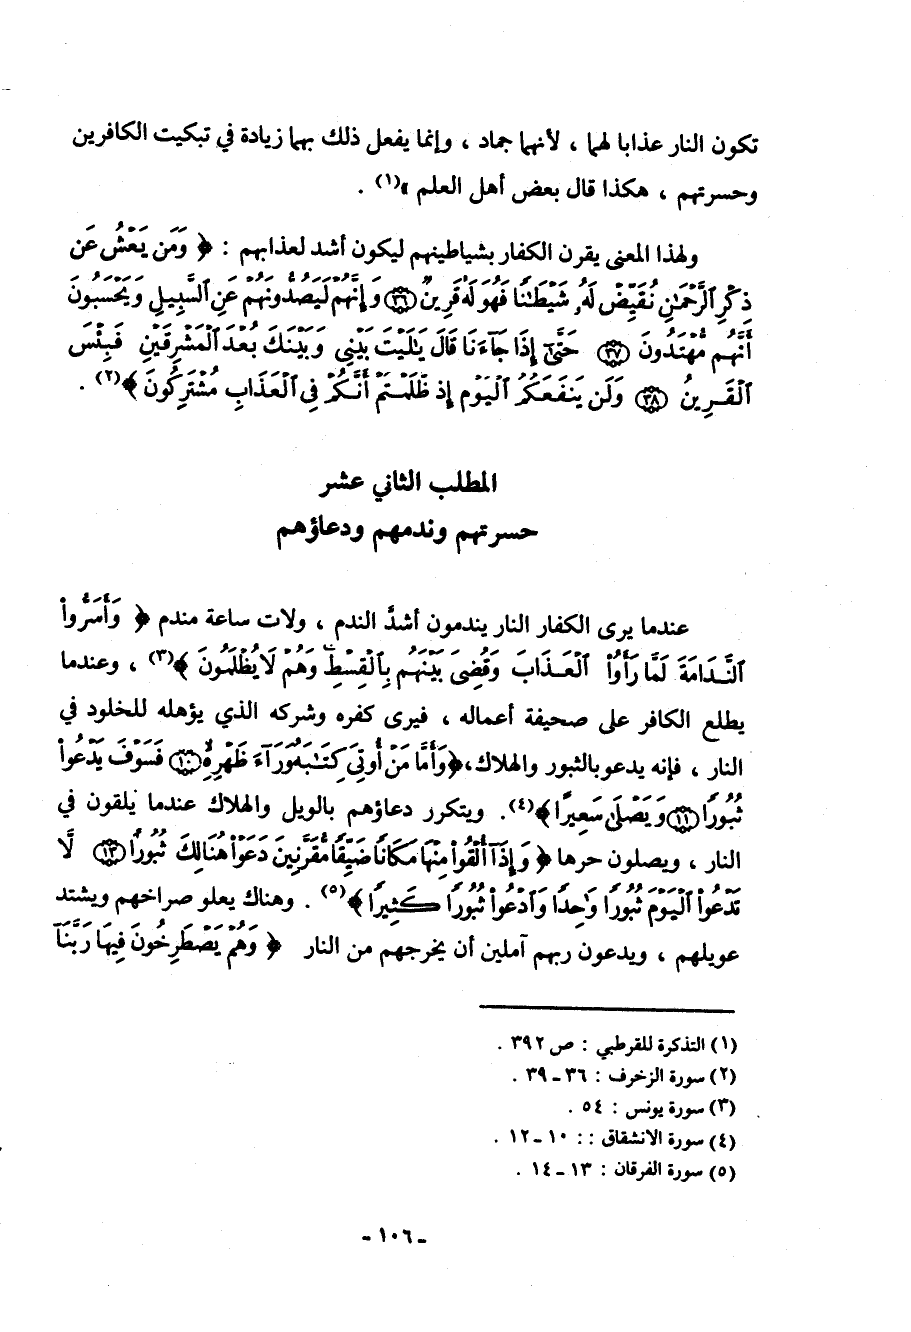 تكون النار عذابا لهما ، لأنهما جماد ، وإنما يفعل ذلك بهما زيادة في تبكيت الكافرين
وحسرتهم ، هكذا قال بعض أهل العلم »(١) .
ولهذا المعنى يقرن الكفار بشياطينهم ليكون أشد لعذابهم : ﴿ وَمَن يَعْشُ عَن
ذِكْرِ ٱلرَّحْمَٰنِ نُقَيِّضْ لَهُۥ شَيْطَٰنًا فَهُوَ لَهُۥ قَرِينٌ ٣٦ وَإِنَّهُمْ لَيَصُدُّونَهُمْ عَنِ ٱلسَّبِيلِ وَيَحْسَبُونَ
أَنَّهُم مُّهْتَدُونَ ٣٧ حَتَّىٰٓ إِذَا جَآءَنَا قَالَ يَٰلَيْتَ بَيْنِى وَبَيْنَكَ بُعْدَ ٱلْمَشْرِقَيْنِ فَبِئْسَ
ٱلْقَرِينُ ٣٨ وَلَن يَنفَعَكُمُ ٱلْيَوْمَ إِذ ظَّلَمْتُمْ أَنَّكُمْ فِى ٱلْعَذَابِ مُشْتَرِكُونَ ﴾(٢) .
المطلب الثاني عشر
حسرتهم وندمهم ودعاؤهم
عندما يرى الكفار النار يندمون أشدَّ الندم ، ولات ساعة مندم ﴿ وَأَسَرُّوا۟
ٱلنَّدَامَةَ لَمَّا رَأَوُا۟ ٱلْعَذَابَ وَقُضِىَ بَيْنَهُم بِٱلْقِسْطِ وَهُمْ لَا يُظْلَمُونَ ﴾(٣) ، وعندما
يطلع الكافر على صحيفة أعماله ، فيرى كفره وشركه الذي يؤهله للخلود في
النار ، فإنه يدعو بالثبور والهلاك، ﴿وَأَمَّا مَنْ أُوتِىَ كِتَٰبَهُۥ وَرَآءَ ظَهْرِهِۦ ١٠ فَسَوْفَ يَدْعُوا۟
ثُبُورًا ١١ وَيَصْلَىٰ سَعِيرًا ﴾(٤). ويتكرر دعاؤهم بالويل والهلاك عندما يلقون في
النار ، ويصلون حرها ﴿ وَإِذَآ أُلْقُوا۟ مِنْهَا مَكَانًا ضَيِّقًا مُّقَرَّنِينَ دَعَوْا۟ هُنَالِكَ ثُبُورًا ١٣ لَّا
تَدْعُوا۟ ٱلْيَوْمَ ثُبُورًا وَٰحِدًا وَٱدْعُوا۟ ثُبُورًا كَثِيرًا ﴾(٥) . وهناك يعلو صراخهم ويشتد
عويلهم ، ويدعون ربهم آملين أن يخرجهم من النار ﴿ وَهُمْ يَصْطَرِخُونَ فِيهَا رَبَّنَآ
(١) التذكرة للقرطبي : ص ٣٩٢ .
(٢) سورة الزخرف : ٣٦ ـ ٣٩ .
(٣) سورة يونس : ٥٤ .
(٤) سورة الانشقاق : : ١٠ ـ ١٢ .
(٥) سورة الفرقان : ١٣ ـ ١٤ .
ـ ١٠٦ ـ